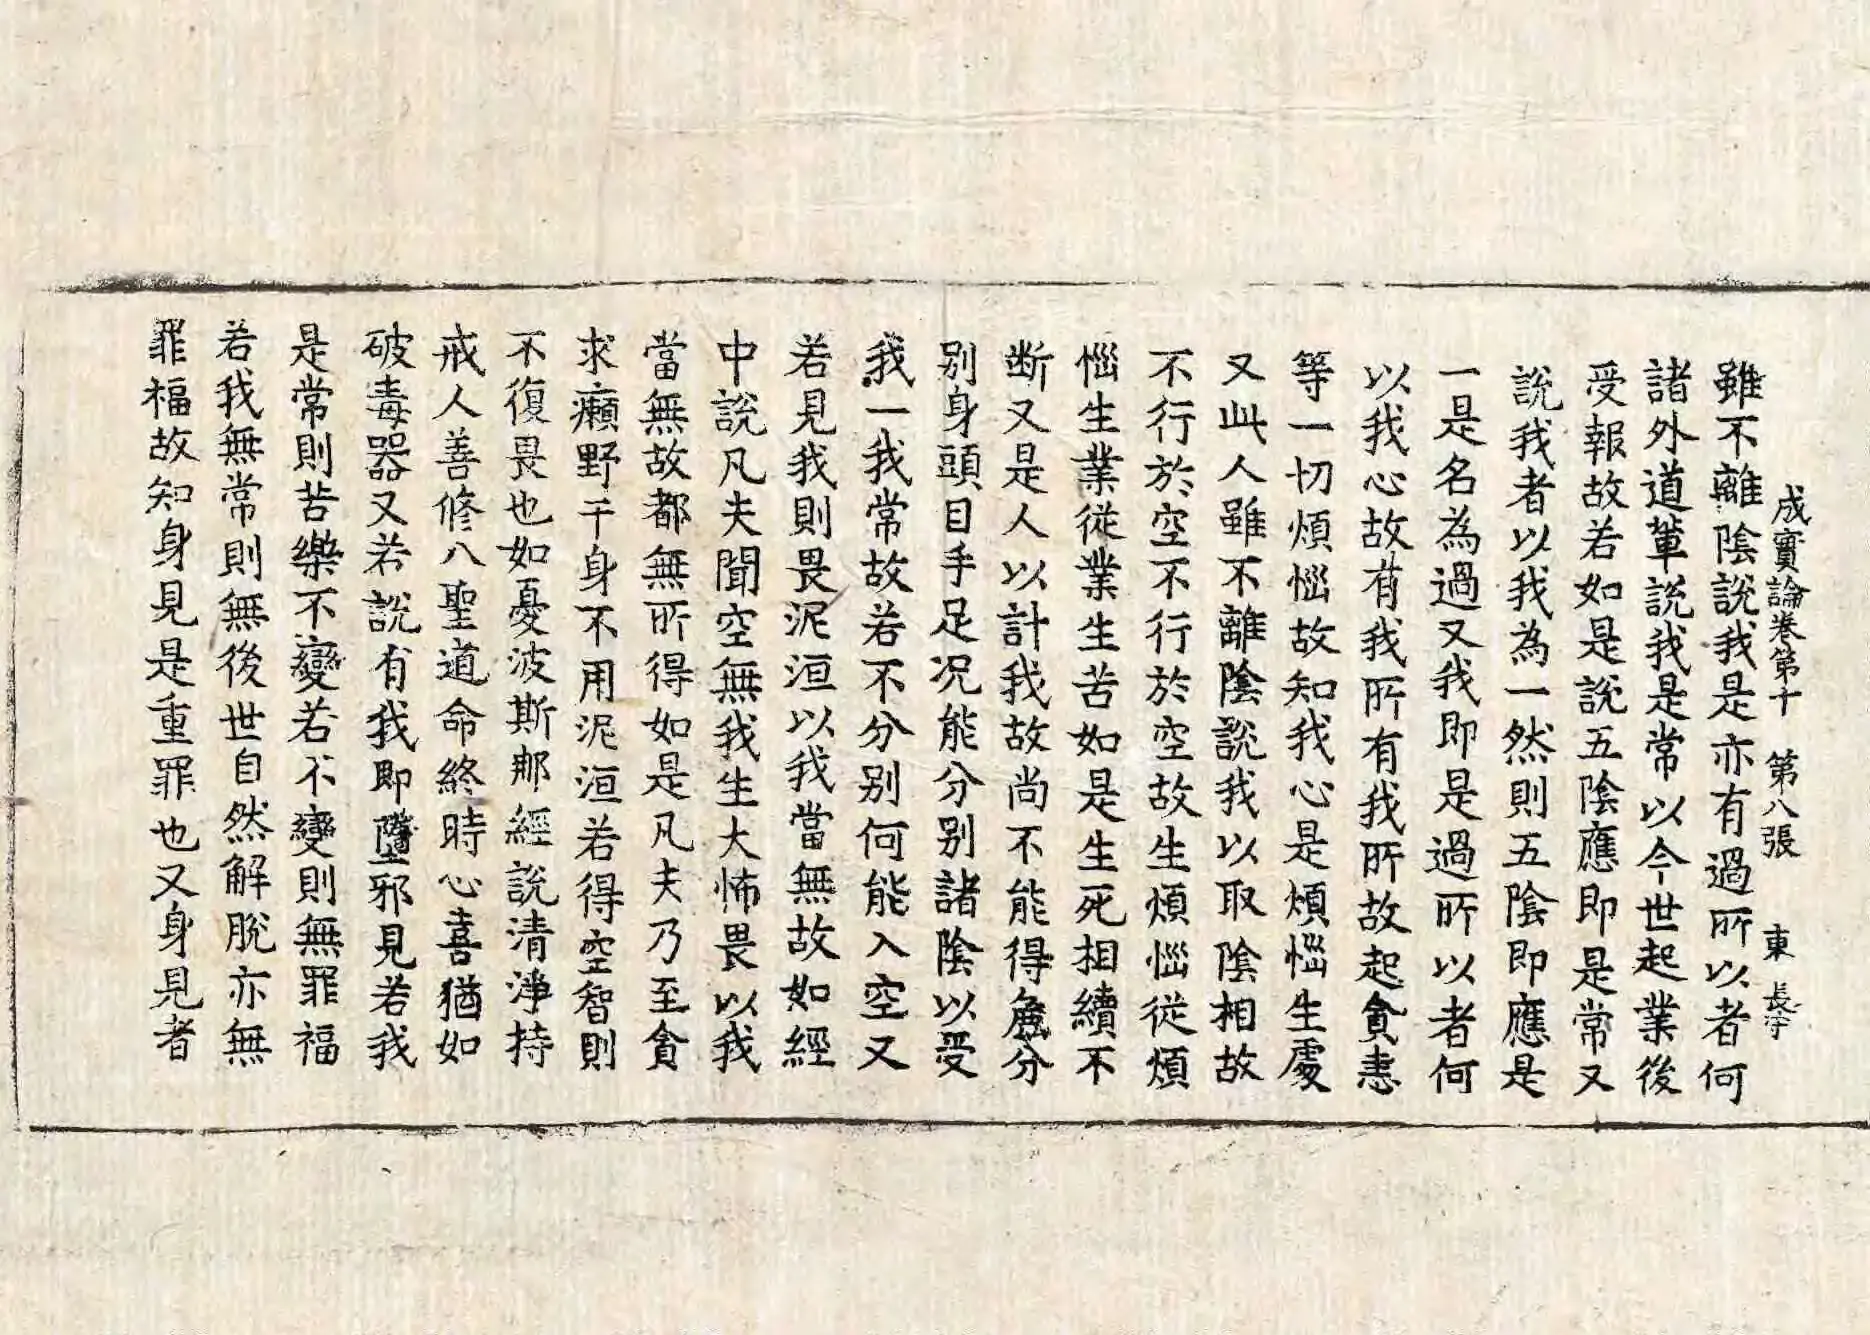 成實論卷第十 第八張 東
雖不離陰說我是亦有過所以者何
諸外道輩說我是常以今世起業後
受報故若如是說五陰應即是常又
說我者以我為一然則五陰即應是
一是名為過又我即是過所以者何
以我心故有我所有我所故起貪恚
等一切煩惱故知我心是煩惱生處
又此人雖不離陰說我以取陰相故
不行於空不行於空故生煩惱從煩
惱生業從業生苦如是生死相續不
断又是人以計我故尚不能得麁分
別身頭目手足况能分別諸陰以受
我一我常故若不分別何能入空又
若見我則畏泥洹以我當無故如經
中說凡夫聞空無我生大怖畏以我
當無故都無所得如是凡夫乃至貪
求癩野干身不用泥洹若得空智則
不復畏也如憂波斯那經說清淨持
戒人善修八聖道命終時心喜猶如
破毒器又若說有我即墮邪見若我
是常則苦樂不變若不變則無罪福
若我無常則無後世自然解脫亦無
罪福故知身見是重罪也又身見者